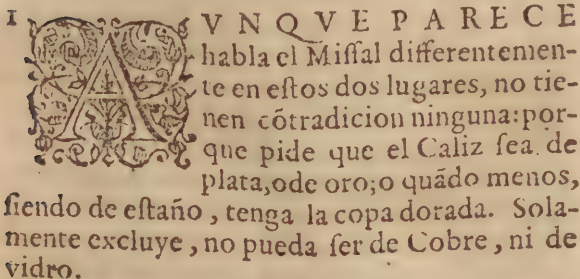 1 AVNQVE PARECE
habla el Miſſal differentemen-
te en eſtos dos lugares, no tie-
nen cõtradicion ninguna: por-
que pide que el Caliz ſea de
plata, ode oro; o quãdo menos,
ſiendo de eſtaño, tenga la copa dorada. Sola-
mente excluye, no pueda ſer de Cobre, ni de
vidro.